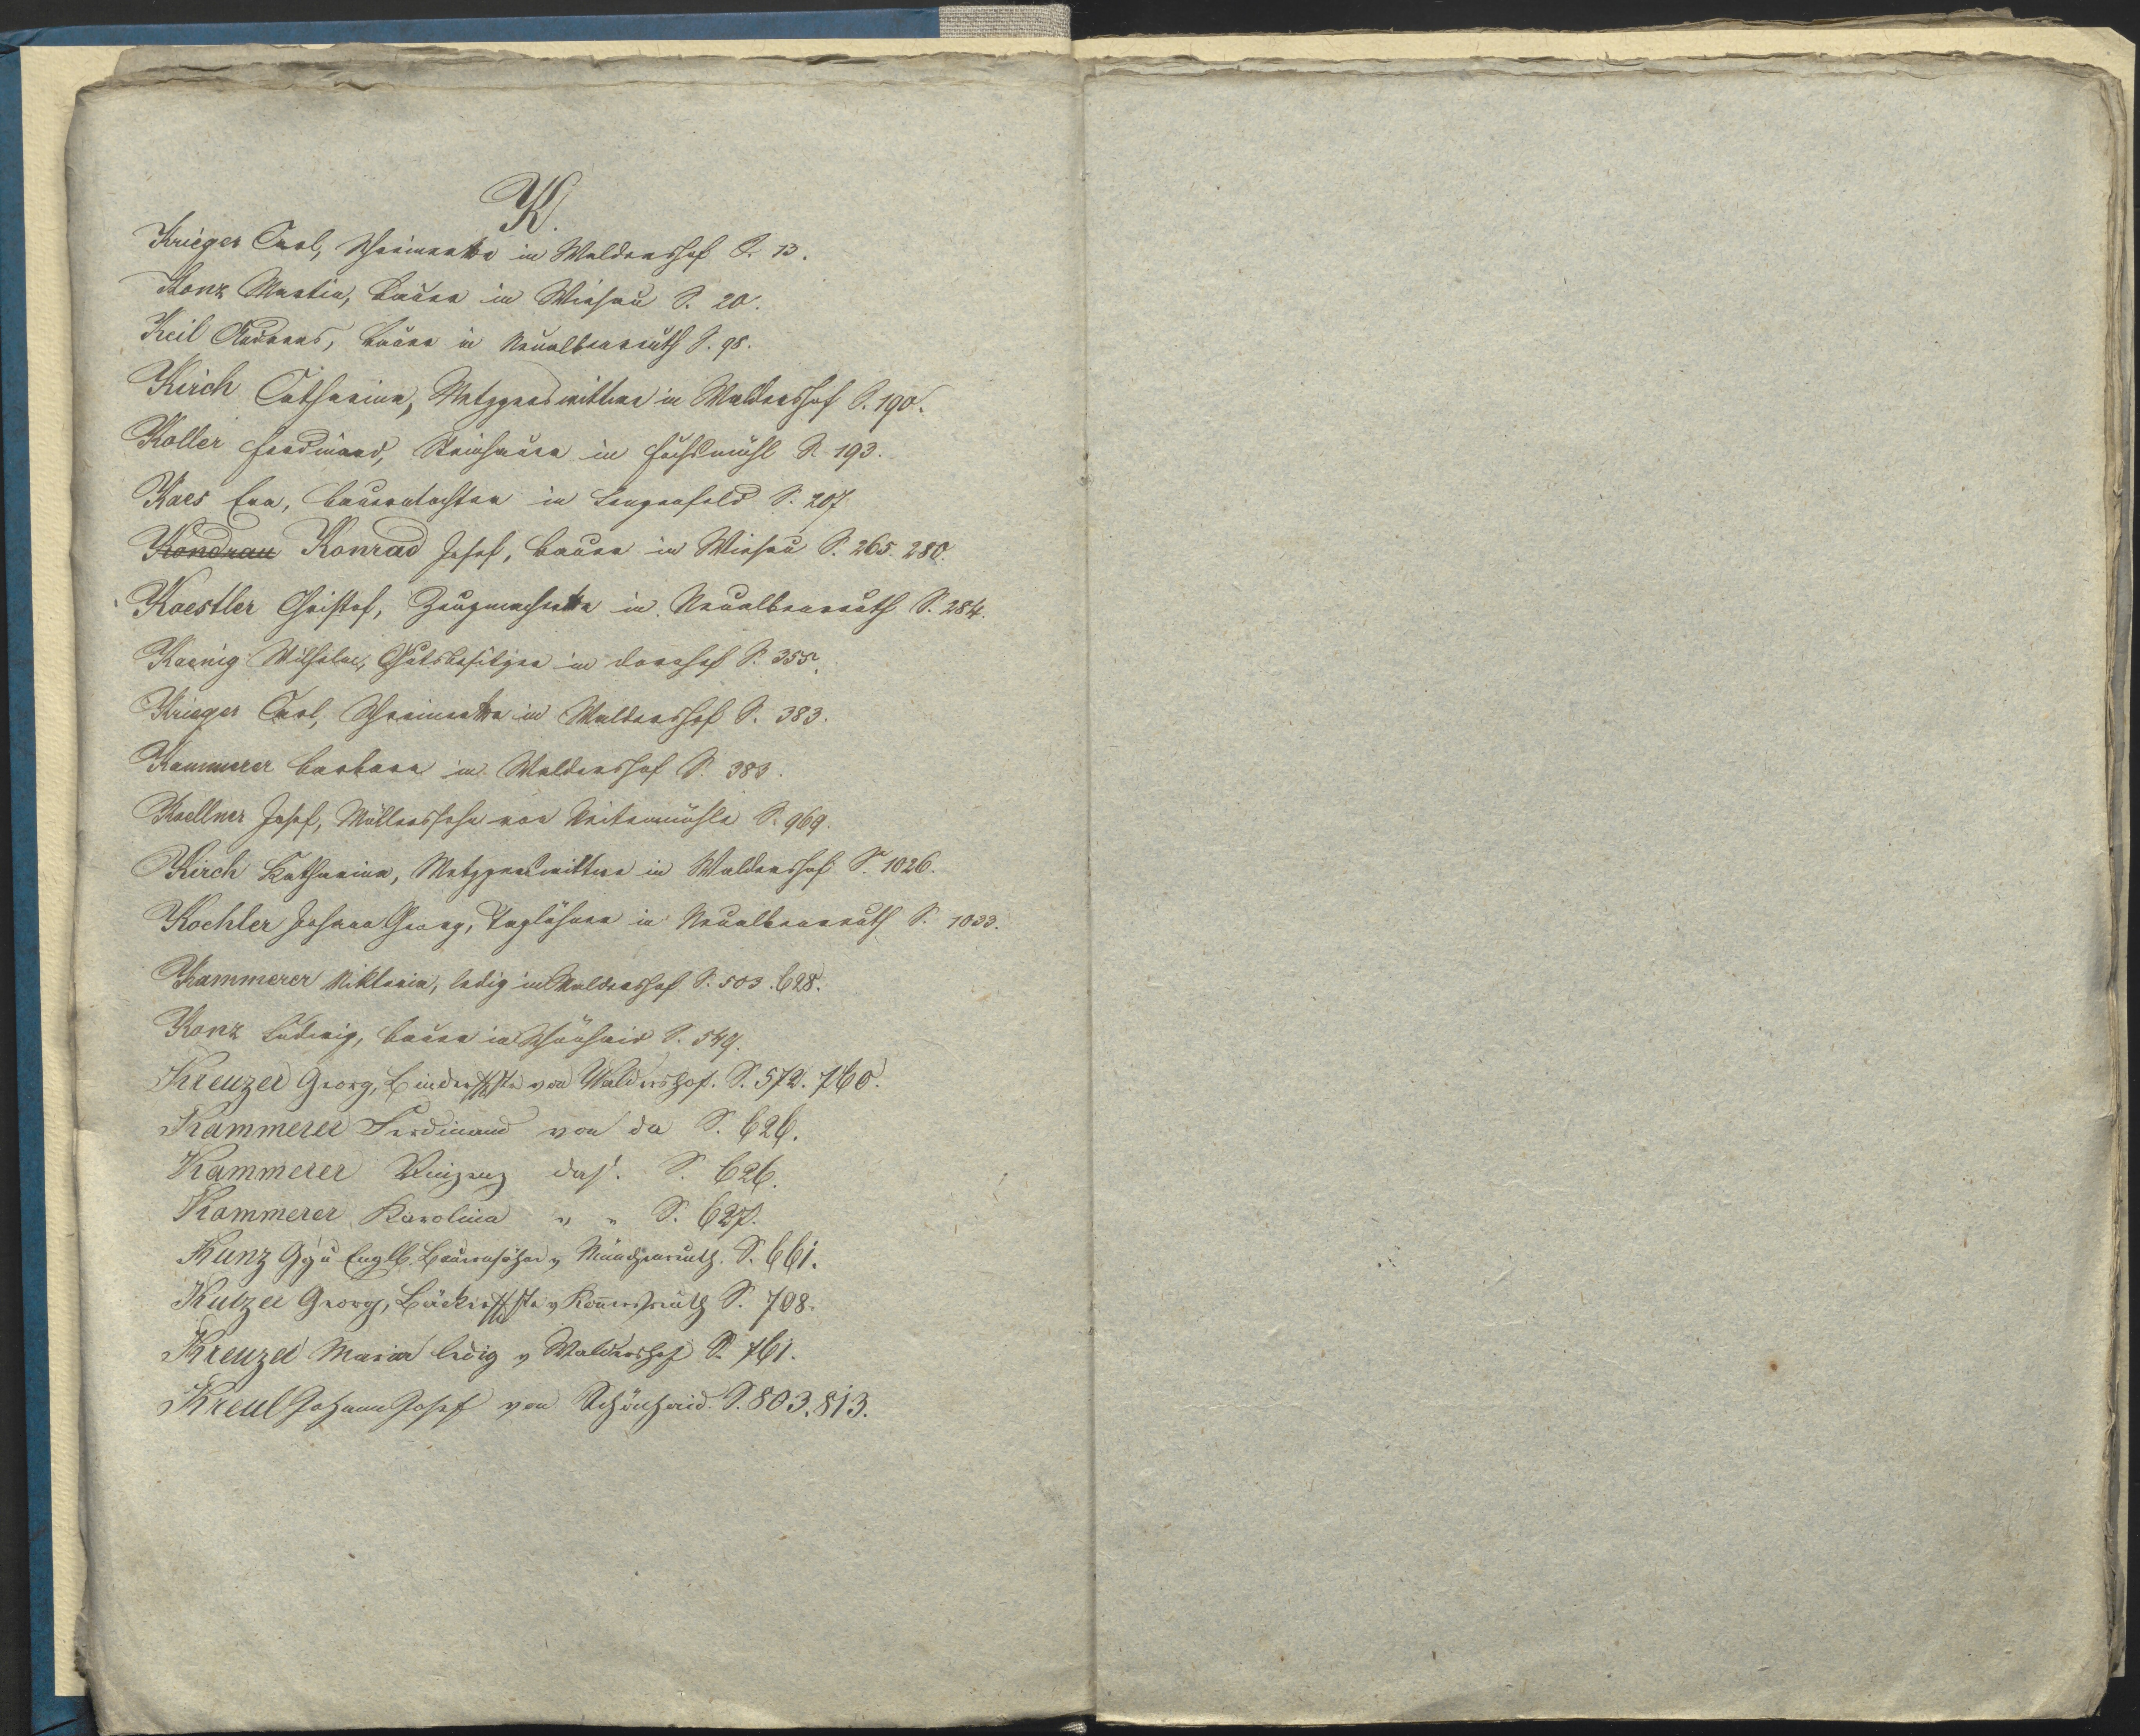 K.
Krieger Carl, Schreiner in Waldershof S. 13.
Konz Martin, Bauer in Wiesau S. 20.
Keil Andreas, Bauer in Neualbenreuth S. 98.
Kirch Catharina, Metzgerswittwe in Waldershof S. 190.
Koller Ferdinand, Steinhauer in Fuchsmühl S. 193.
Kaes Eva, Bauerntochter in Lengenfeld S. 207
Kondrau Konrad Josef, Bauer in Wiesau S. 265. 280.
Kaestler Christof, Zeugmacher in Neualbenreuth S. 284.
Koenig Wilhelm, Gutsbesitzer in S. 355.
Krieger Carl, Schreiner in Waldershof S. 383.
Kammerer Barbara in Waldershof S. 383.
Koellner Josef, Müllerssohn von S. 969.
Kirch Katharina, Metzgerswittwe in Waldershof S. 1026.
Koehler Johann Georg, Taglöhner in Neualbenreuth S. 1033.
Kammerer Viktoria, ledig in Waldershof S. 503. 628.
Konz Ludwig, Bauer in Schönhaid S. 549.
Kreuzer Georg, von Waldershof. S. 572. 760.
Kammerer Ferdinand von da S. 626.
Kammerer Vinzenz das. S. 626.
Kammerer Karolina " " S. 627.
Kunz Engelb. v. Münchenreuth. S. 661.
Kutzer Georg, v. Konnersreuth S. 708.
Kreuzer Maria ledig v. Waldershof S. 761.
Kreul Johann Josef von Schönhaid. S. 803. 813.